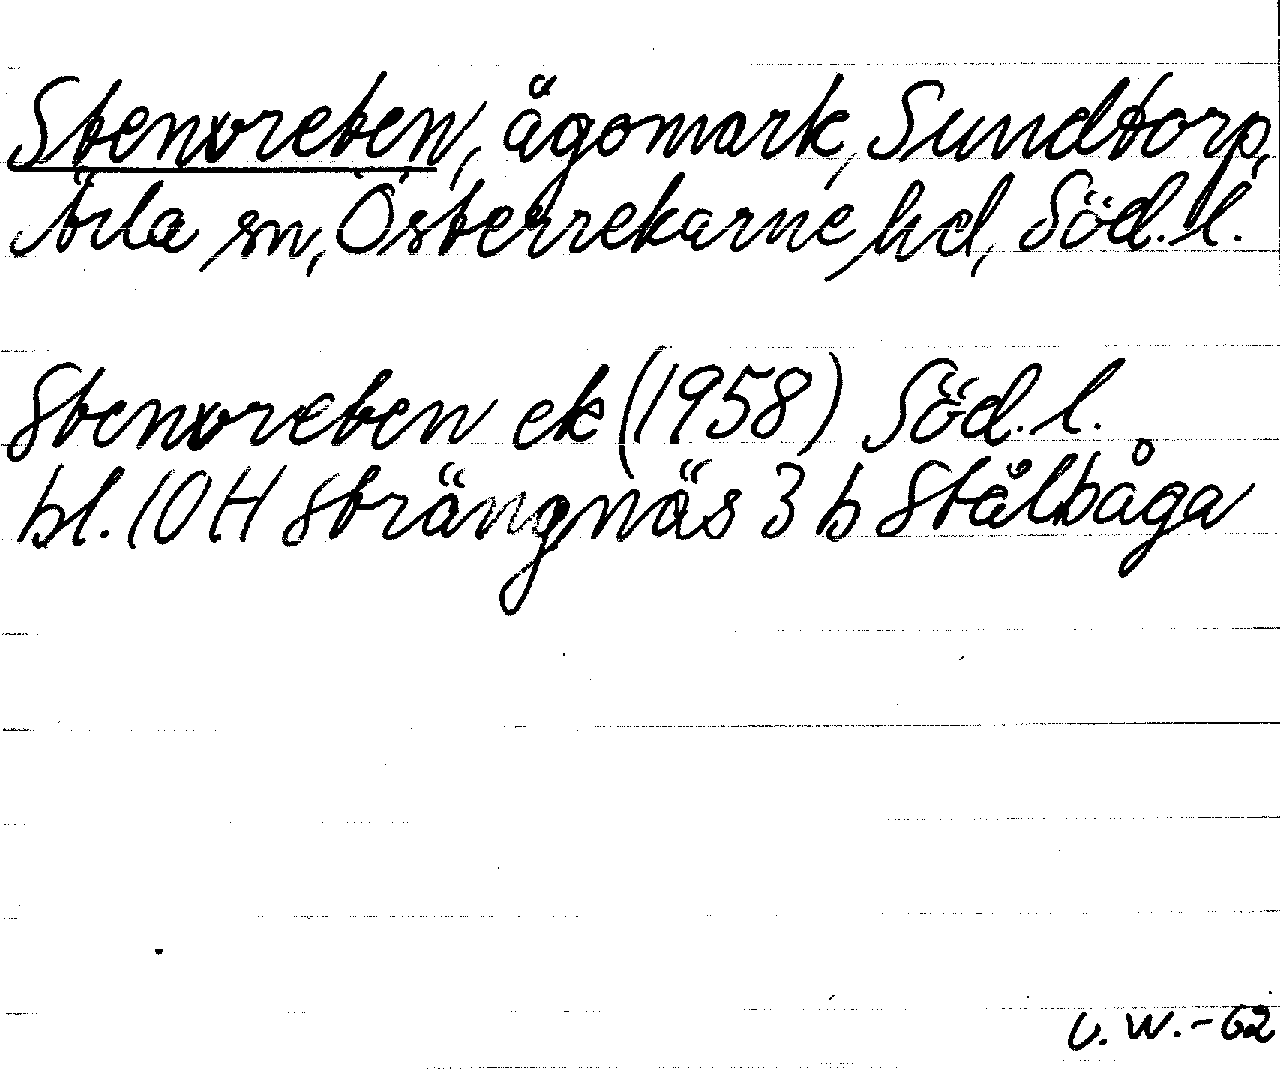 Stenvreten, ägomark, Sundtorp,
Ärla sn, Österrekarne hd, Söd. l.
Stenvreten ek (1958) Söd. l.
bl. 10 H Strängnäs 3 b Stålbåga
U. W. - 62